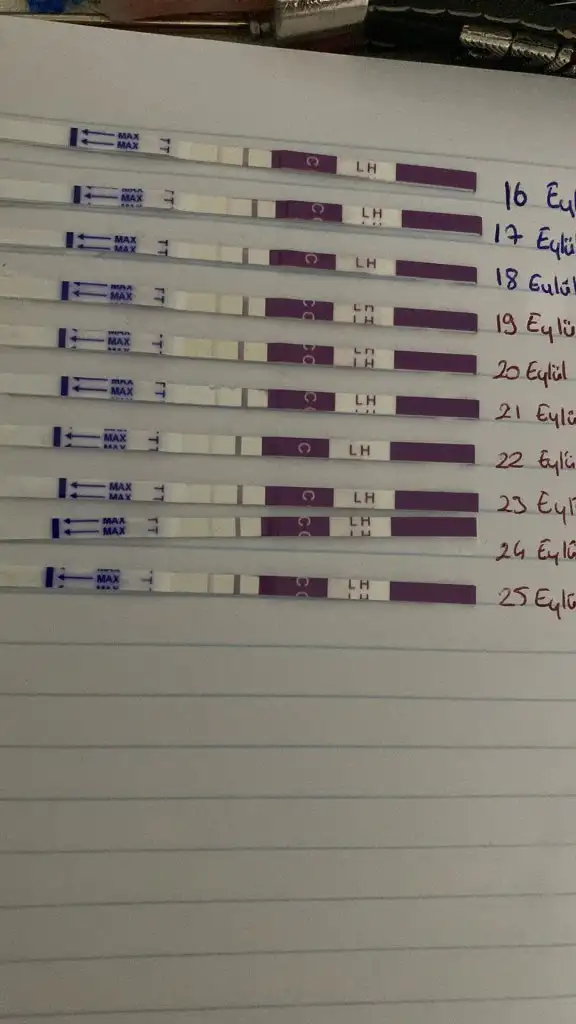 MAX
MAX
C
LH
16 Eyl
MAX
MAX
C
LH
17 Eylü
MAX
MAX
C
LH
18 Eylül
MAX
MAX
C
LH
19 Eylü
MAX
MAX
C
LH
20 Eylül
MAX
MAX
C
LH
21 Eylü
MAX
MAX
C
LH
22 Eylü
MAX
MAX
C
LH
23 Eyl
MAX
MAX
C
LH
24 Eylü
MAX
C
LH
25 Eylü